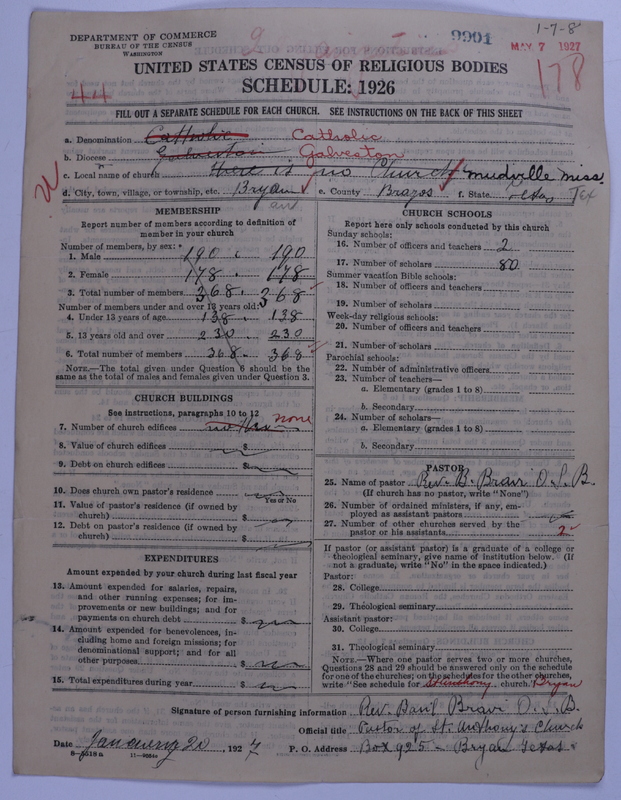 1-7-8
DEPARTMENT OF COMMERCE
BUREAU OF THE CENSUS
WASHINGTON
9901
MAY 7 1927
178
UNITED STATES CENSUS OF RELIGIOUS BODIES
SCHEDULE: 1926
44
FILL OUT A SEPARATE SCHEDULE FOR EACH CHURCH. SEE INSTRUCTIONS ON THE BACK OF THIS SHEET
a. Denomination Catholic Catholic
b. Diocese Galveston Galveston
c. Local name of church there is no Church mudville miss.
d. City, town, village, or township, etc. Bryan e. County Brazos f. State Texas Tex
MEMBERSHIP
Report number of members according to definition of member in your church
Number of members, by sex:
1. Male 190 190
2. Female 178 178
3. Total number of members 368 368
Number of members under and over 13 years old:
4. Under 13 years of age 138 138
5. 13 years old and over 230 230
6. Total number of members 368 368
NOTE.—The total given under Question 6 should be the same as the total of males and females given under Question 3.
CHURCH BUILDINGS
See instructions, paragraphs 10 to 12
7. Number of church edifices none
8. Value of church edifices $
9. Debt on church edifices $
10. Does church own pastor's residence
Yes or No
11. Value of pastor's residence (if owned by church) $
12. Debt on pastor's residence (if owned by church) $
EXPENDITURES
Amount expended by your church during last fiscal year
13. Amount expended for salaries, repairs, and other running expenses; for improvements or new buildings; and for payments on church debt $
14. Amount expended for benevolences, including home and foreign missions; for denominational support; and for all other purposes $
15. Total expenditures during year $
CHURCH SCHOOLS
Report here only schools conducted by this church
Sunday schools:
16. Number of officers and teachers 2
17. Number of scholars 80
Summer vacation Bible schools:
18. Number of officers and teachers
19. Number of scholars
Week-day religious schools:
20. Number of officers and teachers
21. Number of scholars
Parochial schools:
22. Number of administrative officers
23. Number of teachers—
a. Elementary (grades 1 to 8)
b. Secondary
24. Number of scholars—
a. Elementary (grades 1 to 8)
b. Secondary
PASTOR
25. Name of pastor Rev. B. Bravi O.S.B.
(If church has no pastor, write "None")
26. Number of ordained ministers, if any, employed as assistant pastors
27. Number of other churches served by the pastor or his assistants 2
If pastor (or assistant pastor) is a graduate of a college or theological seminary, give name of institution below. (If not a graduate, write "No" in the space indicated.)
Pastor:
28. College
29. Theological seminary
Assistant pastor:
30. College
31. Theological seminary
NOTE.—Where one pastor serves two or more churches, Questions 28 and 29 should be answered only on the schedule for one of the churches; on the schedules for the other churches, write "See schedule for St Anthony church. Bryan
Signature of person furnishing information Rev. Basil Bravi O.S.B.
Official title Pastor of St. Anthony's Church
Date January 20, 1927 P. O. Address Box 925 - Bryan Texas
8—5518 a 11—9664a